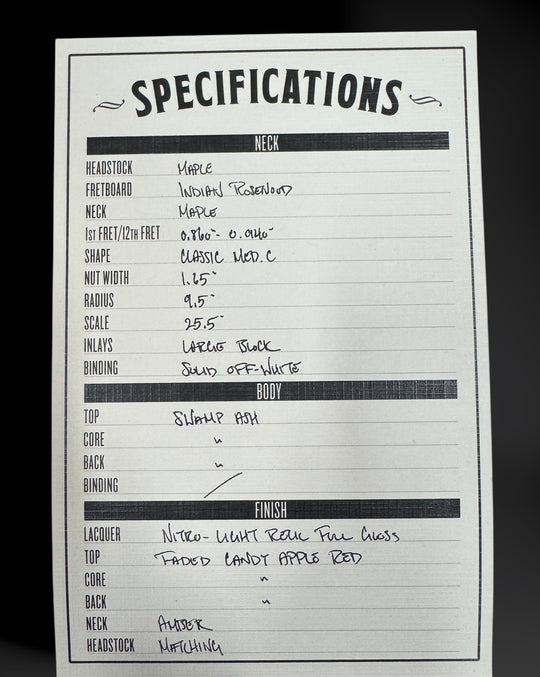 SPECIFICATIONS
NECK
HEADSTOCK MAPLE
FRETBOARD INDIAN ROSEWOOD
NECK MAPLE
1ST FRET/12TH FRET 0.860"- 0.940"
SHAPE CLASSIC MED. C
NUT WIDTH 1.65"
RADIUS 9.5"
SCALE 25.5"
INLAYS LARGE BLOCK
BINDING SOLID OFF-WHITE
BODY
TOP SWAMP ASH
CORE "
BACK "
BINDING /
FINISH
LACQUER NITRO- LIGHT RELIC FULL GLOSS
TOP FADED CANDY APPLE RED
CORE "
BACK "
NECK AMBER
HEADSTOCK MATCHING